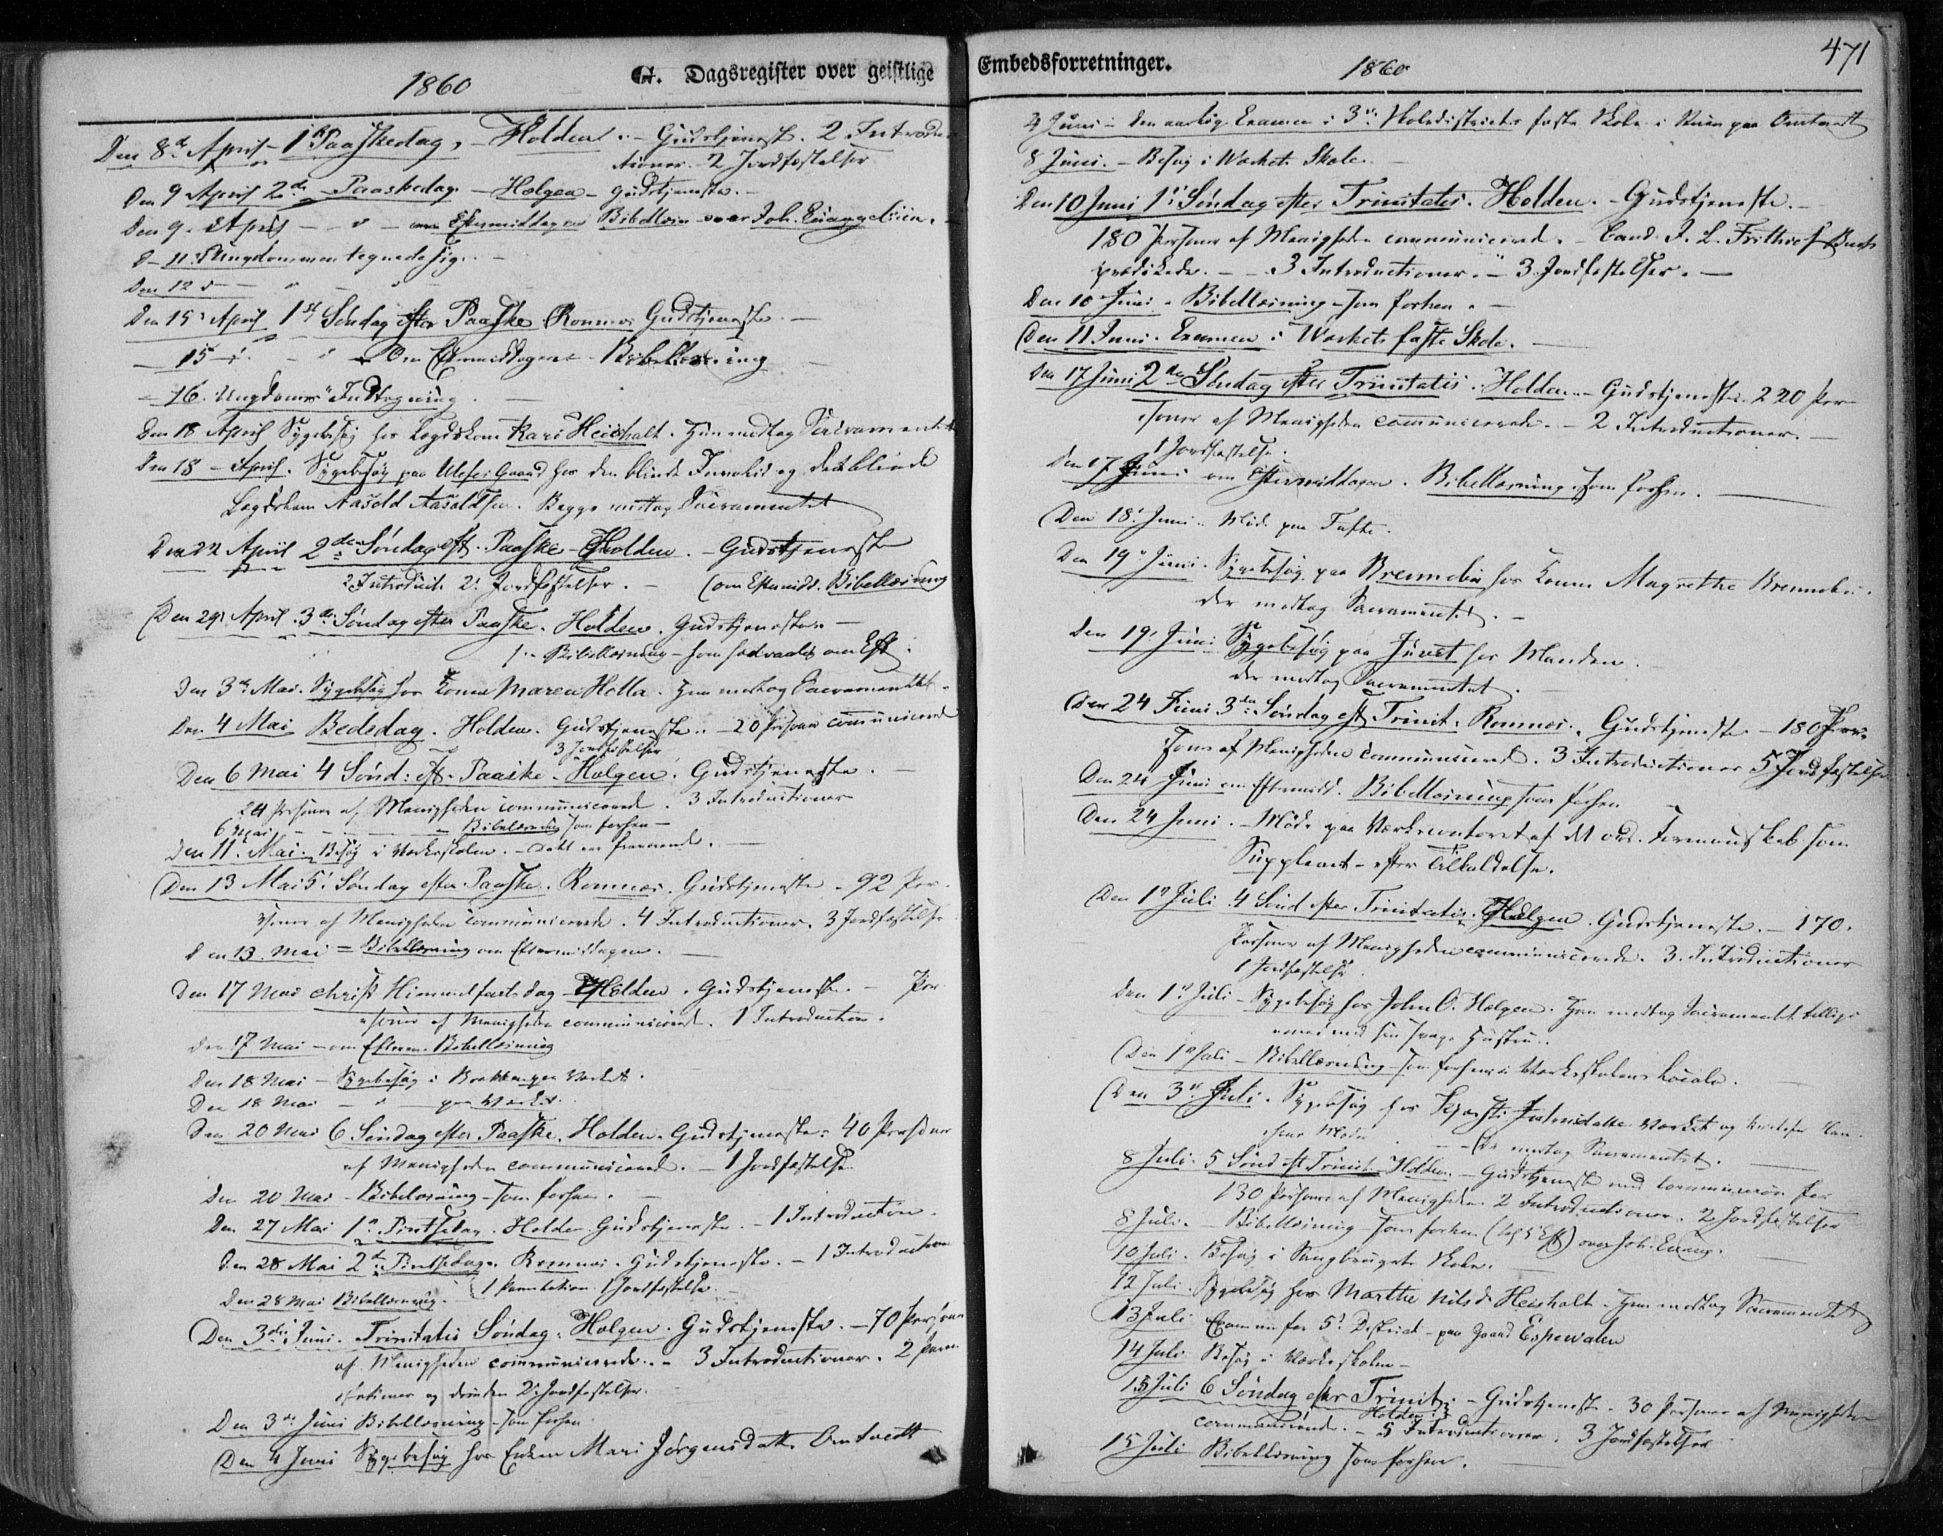 1860
G. Dagsregister over geistlige
Den 8de April 1ste Paaskedag, Holden. - Gudstjeneste. 2 Introduc-
tioner. 2 Jordfæstelser
Den 9 April 2den Paaskedag - Helgen - Gudstjeneste. -
Den 9. April - " - om Eftermiddagen Bibellæsn. over Joh. Evangelium. -
D - 11. Ungdommen tegnede sig. -
Den 12 d - " - "
Den 15 April 1ste Søndag efter Paaske Romnes Gudstjeneste -
- 15 d. - " - Om Eftermiddagen - Bibellæsning
- 16. Ungdoms Indtegning. -
Den 18 April Sygebesøg hos Lægdskone Kari Heisholt. Hun modtog Sacramentet
Den 18 - April. Sygebesøg paa Ulefos Gaard hos den blinde Invalid og det blinde
Lægdslem Aasold Aasoldsen. Begge modtog Sacramentet
Den 22 April 2den Søndag eft. Paaske - Holden. - Gudstjeneste
2. Introduct. 2 Jordfæstelser. - (om Eftermidd. Bibellæsning
Den 29. April. 3die Søndag efter Paaske. Holden. Gudstjeneste. -
1. - Bibellæsning - som sædvanlig om Eft.
Den 3die Mai. Sygebesøg hos Konen Maren Holla. Hun modtog Sacramentet.
Den 4 Mai Bededag. Holden. Gudstjeneste. - 20 Personer communicerede
3 Jordfæstelser
Den 6 Mai 4 Sønd: eft. Paaske - Helgen. Gudstjeneste. -
24 Personer af Menigheden communicerede. 3 Introductioner
6 Mai - - - Bibellæsning som forhen -
Den 11. Mai. Besøg i Værksskolen. -
Den 13 Mai 5. Søndag efter Paaske. Romnes. Gudstjeneste - 92 Per-
soner af Menigheden communicerede. 4 Introductioner. 3 Jordfæstelser
Den 13. Mai = Bibellæsning om Eftermiddagen. -
Den 17 Mai Christi Himmelfartsdag Holden. Gudstjeneste. - Per-
soner af Menigheden communicerede. 1 Introduction.
Den 17 Mai - om Efterm. Bibellæsning
Den 18 Mai - Sygebesøg i Brakken paa Værket.
Den 18 Mai - " - paa Værket.
Den 20 Mai 6 Søndag efter Paaske. Holden. Gudstjeneste: 40 Personer
af Menigheden communicerede. - 1 Jordfæstelse
Den 20 Mai - Bibellæsning - som forhen. -
Den 27 Mai 1ste Pintsedag. Holden. Gudstjeneste. - 1 Introduction.
Den 28 Mai 2den Pintsedag. Romnes. Gudstjeneste. - 1 Introduction
Den 28 Mai Bibellæsning. 1 Jordfæstelse.
Den 3die Juni. Trinitatis Søndag. Helgen. Gudstjeneste. - 70 Personer
af Menigheden communicerede. - 3 Introductioner. 2
og desuden 2 Jordfæstelser.
Den 3die Juni Bibellæsning - som forhen.
Den 4 Juni Sygebesøg hos Enken Mari Jørgensdatter Omtvedt
Embedsforretninger.
1860
471
4 Juni - den aarlige Examen i 3die Skoledistricts faste Skole i Stuen paa Omtvedt
8 Juni. - Besøg i Værkets Skole.
Den 10 Juni 1ste Søndag efter Trinitatis. Holden. - Gudstjeneste. -
180 Personer af Menigheden communicerede. - Cand. J. L. Frithiof
prædikede. - 3 Introductioner. - 3 Jordfæstelser. -
Den 10 Juni - Bibellæsning - som forhen. -
Den 11 Juni. Examen i Værkets faste Skole. -
Den 17 Juni 2den Søndag efter Trinitatis. Holden. - Gudstjeneste. 220 Per-
soner af Menigheden communicerede. - 2 Introductioner. -
1 Jordfæstelse.
Den 17 Juni om Eftermiddagen. Bibellæsning som forhen. -
Den 18. Juni. Møde paa Tufte.
Den 19 Juni. Sygebesøg paa Brenndia hos Konen Magrethe Brenndia.
der modtog Sacramentet. -
Den 19. Juni Sygebesøg paa Juvet hos Manden.
der modtog Sacramentet.
Den 24 Juni 3die Søndag eft Trinit. Romnes. Gudstjeneste - 180 Per-
soner af Menigheden communicerede. 3 Introductioner 5 Jordfæstelser
Den 24 Juni om Eftermidd. Bibellæsning som forhen -
Den 24 Juni. - Møde paa Værkscontoret af det ord. Formandskab som
Suppleant - efter Tilkaldelse.
Den 1ste Juli 4 Sønd efter Trinitatis. Helgen. Gudstjeneste. - 170.
Personer af Menigheden communicerede. 3. Introductioner
1 Jordfæstelse
Den 1ste Juli - Sygebesøg hos John O. Helgen. Han modtog Sacramentet tillige-
med sin svage Hustru.
Den 1ste Juli - Bibellæsning som forhen i Værksskolens Locale. -
Den 3die Juli. Sygebesøg hos Værket og
Moder - De modtog Sacramentet. -
8 Juli. 5 Sønd eft Trinit. Holden. - Gudstjeneste med Communion for
130 Personer af Menigheden. 2 Introductioner. 2 Jordfæstelser
8 Juli. - Bibellæsning som forhen over Joh. Evang. -
10 Juli. Besøg i Sangbrugets Skole.
12 Juli. Sygebesøg hos Marthe Nilsd. Heisholt. Hun modtog Sacramentet
13 Juli Examen for 5. District - paa Gaard Espevalen
14 Juli Besøg i Værksskolen -
15 Juli 6 Søndag efter Trinit. - Gudstjeneste. 30 Personer af Menigheden
Holden
communicerede. - 5 Introductioner. 3 Jordfæstelser
15 Juli Bibellæsning som forhen.